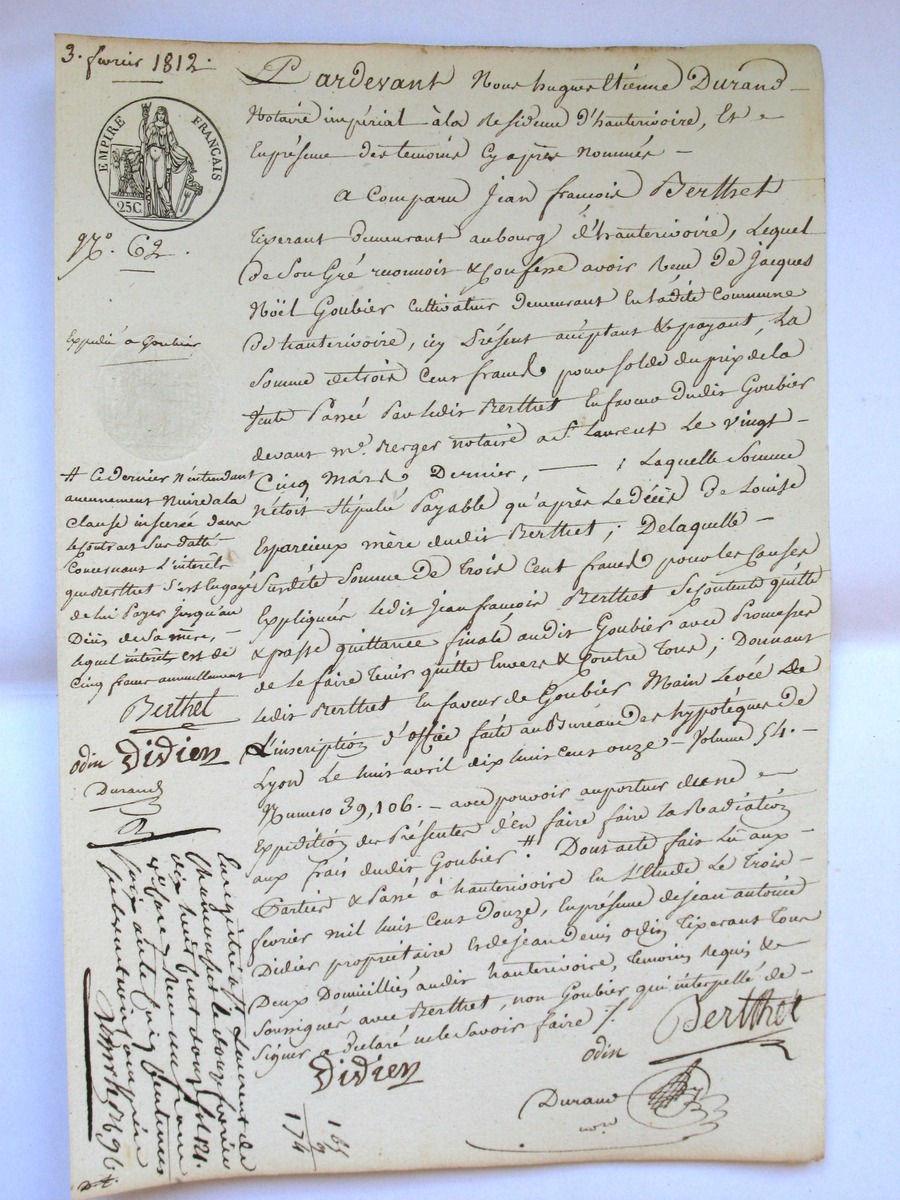 3. fevrier 1812.
EMPIRE FRANÇAIS
25C
N.º 62.
Expedié a Goubier
Pardevant Nous hugues Etienne Durand
Notaire impérial à la Residence d'hauterivoire, Et
En présence des temoins Cy après nommés
a Comparu Jean françois Berthet
tixerant demeurant au bourg d'hauterivoire, Lequel
de Son Gré reconnoit & Confesse avoir Reçu de Jacques
Noël Goubier Cultivateur demeurant En ladite Commune
de hauterivoire, icy Présent acceptant & payant, La
Somme de trois Cent francs pour Solde du prix de la
Vente Passée Par ledit Berthet En faveur dudit Goubier
devant m.e Berger notaire a S.t Laurent Le Vingt
Cinq Mars Dernier, ; Laquelle Somme
N'étoit Stipulée Payable qu'après Le décès de Louise
Esparcieux mère dudit Berthet ; De laquelle
Susdite Somme de Trois Cent francs pour les Causes
Expliquées ledit Jean françois Berthet Se Contente quitte
& passe quittance finale audit Goubier avec Promesse
de le faire tenir quitte Envers & Contre Tous ; Donnant
ledit Berthet En faveur de Goubier Main Levée de
L'inscription d'office faite au Bureau des hypotèques de
Lyon Le huit avril dix huit Cent onze - Volume 54. -
Numero 39,106. - avec pouvoir au porteur
Expedition des Présentes d'en faire faire la Radiation
aux frais dudit Goubier # Dont acte fait Lû aux
Parties & Passé à hauterivoire En L'Etude Le Trois
fevrier mil huit Cent Douze, En présence de Jean antoine
Didier propriétaire Et de Jean denis odin Tixerant Tous
Deux Domiciliés audit hauterivoire, temoins Requis &
Soussignés avec Berthet, non Goubier qui interpellé de
Signer a Déclaré ne le Savoir faire ./.
odin Berthet
Didier
Durand
nore
# Ce dernier n'entendant
aucunement Nuire a la
Clause inserée dans
le Contrat Sus datté
Concernant L'interêt
que Berthet S'est Engagé
de lui Payer Jusqu'au
Décès de Sa mère,
lequel intérêt est de
Cinq francs annuellement
Berthet
odin Didier
Durand
Enregistré a St Laurent de
Chamousset le douze fevrier
dix huit Cent douze fol 121.
reçu un franc
soixante cinq centimes
165
9
174